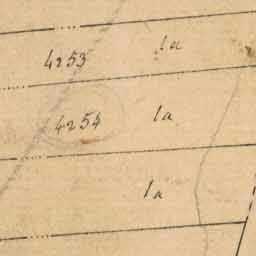 4253 1a
4254 1a
1a